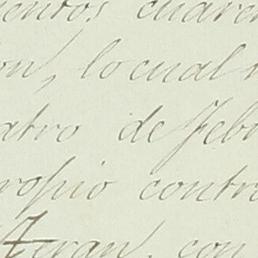 ientos cuaren
on, lo cual
atro de Febr
ropio contra
Teran, con